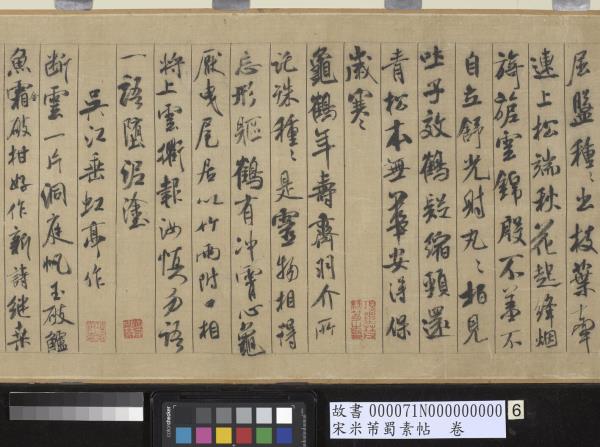 屈盤種〻出枝葉牽
連上松端秋花起絳烟
旖旎雲錦殷不羞不
自立舒光射丸〻柏見
吐子效鶴疑縮頸還
青松本無華安得保
歲寒〻
龜鶴年壽齊羽介所
託殊種〻是靈物相得
忘形軀鶴有沖霄心龜
厭曳尾居以竹兩附口相
將上雲衢報汝慎勿語
一語墮泥塗
吳江垂虹亭作
断雲一片洞庭帆玉破鱸
魚霜破柑好作新詩継桑
故書 000071N000000000
宋米芾蜀素帖 卷
6